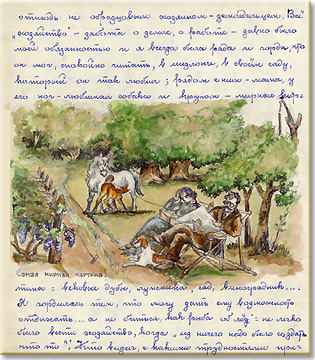 отнюдь не образцовым хозяином-земледельцем. Всё
"хозяйство" - забота о земле, о работе - давно было
моей обязанностью и я всегда была рада и горда, что
он мог, спокойно читать, в шезлонге, в своём саду,
который он так любил; рядом с ним - мама, у
его ног - любимая собака и кругом - мирная
Самая мирная картина:
тина: вековые дубы, лужайка, сад, виноградник...
Я гордилась тем, что могу дать ему возможность
отдыхать... а не биться, как рыба об лёд: - не легко
было вести хозяйство, когда "из ничего надо было создать
что то"! Кто видел, с какими трудностями